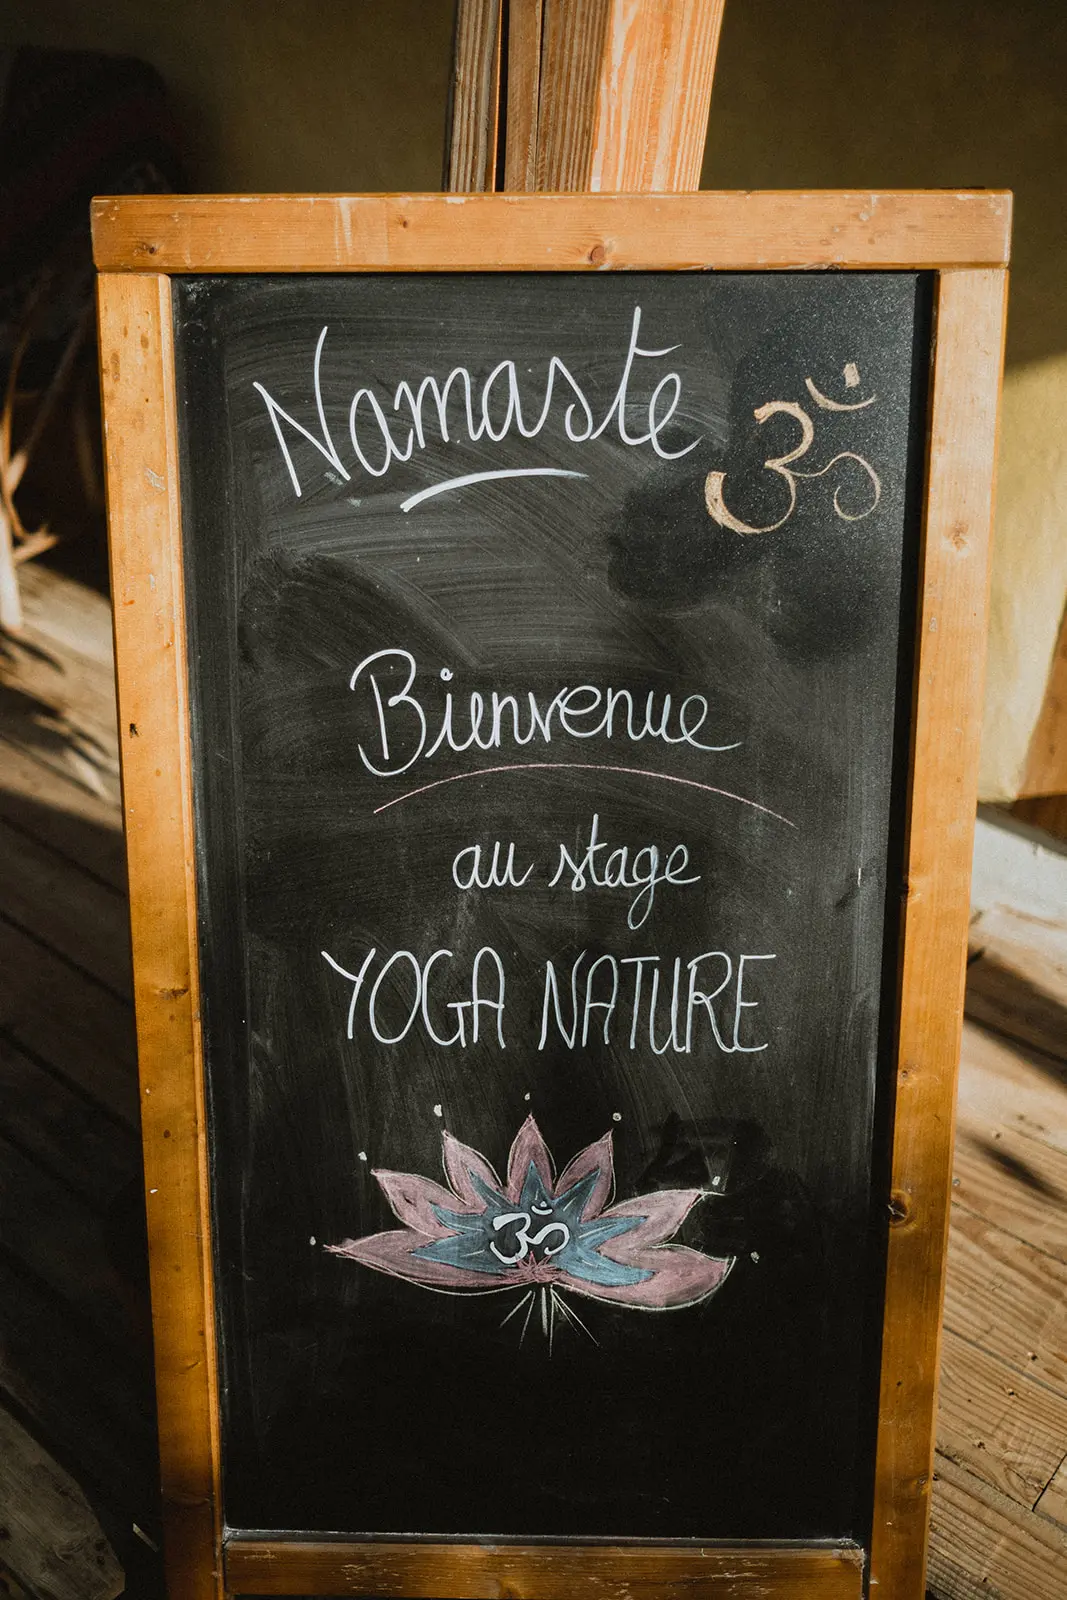 Namaste ॐ
Bienvenue
au stage
YOGA NATURE
ॐ